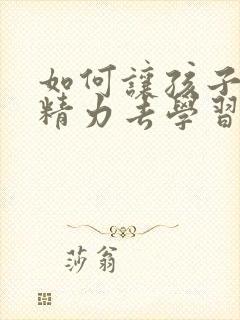 如何讓孩子
精力去學習
莎翁